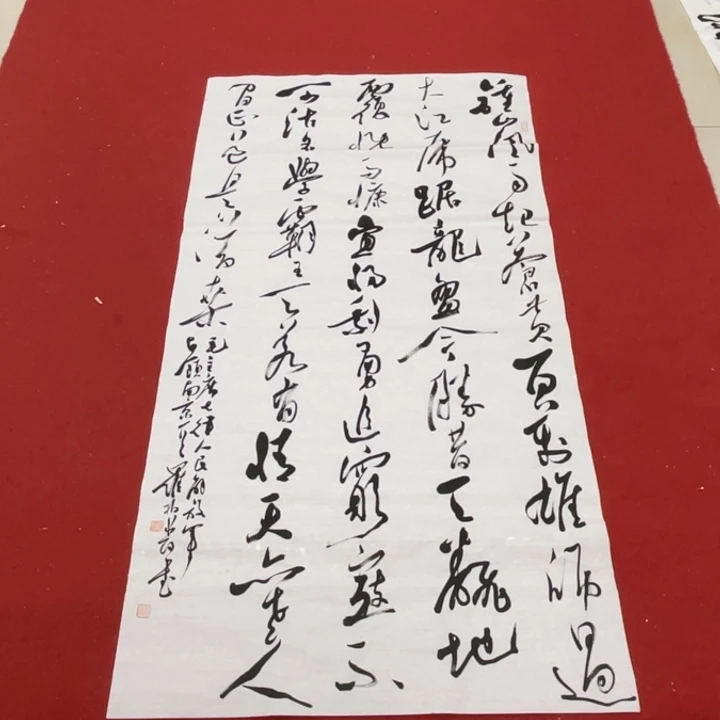 鍾山風雨起蒼黃百萬雄師過
大江虎踞龍盤今勝昔天翻地
覆慨而慷宜將剩勇追窮寇不
可沽名學霸王天若有情天亦老人
間正道是滄桑
毛主席七律人民解放軍
占領南京 羅 書